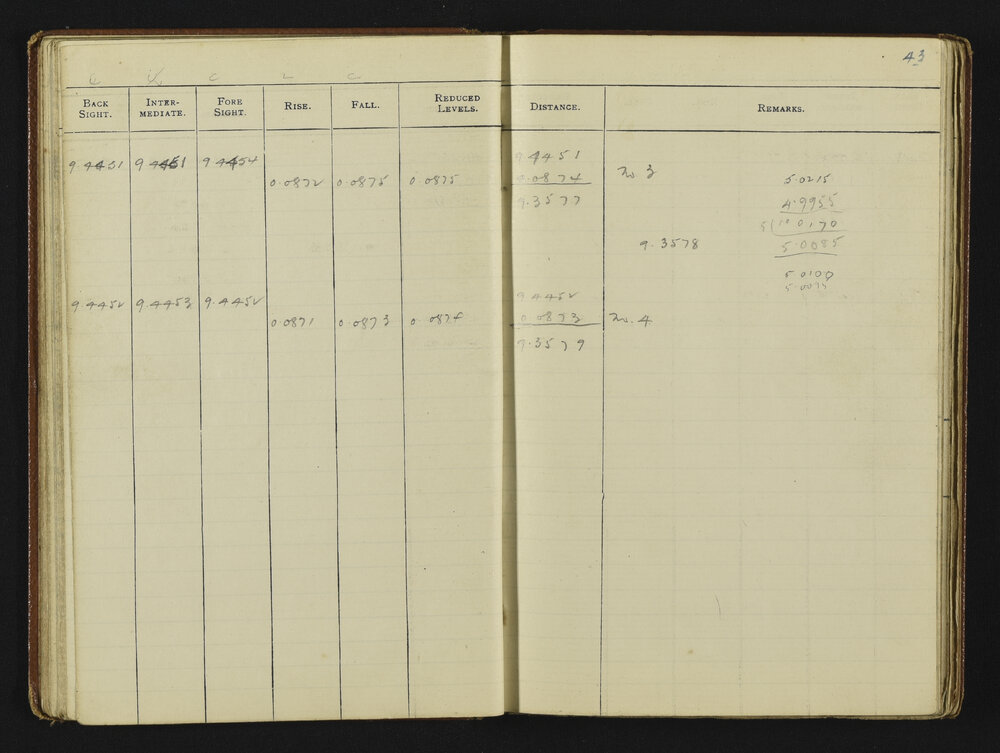 43
BACK SIGHT. INTER-MEDIATE. FORE SIGHT. RISE. FALL. REDUCED LEVELS. DISTANCE. REMARKS.
9.4451 9.4451 9.4454 9.4451
0.0872 0.0875 0.0875 0.0874 No. 3 5.0215
9.3577 4.9955
10 0170
9.3578 5.0085
5.0100
9.4452 9.4453 9.4452 9.4452
0.0871 0.0873 0.0874 0.0873 No. 4
9.3579